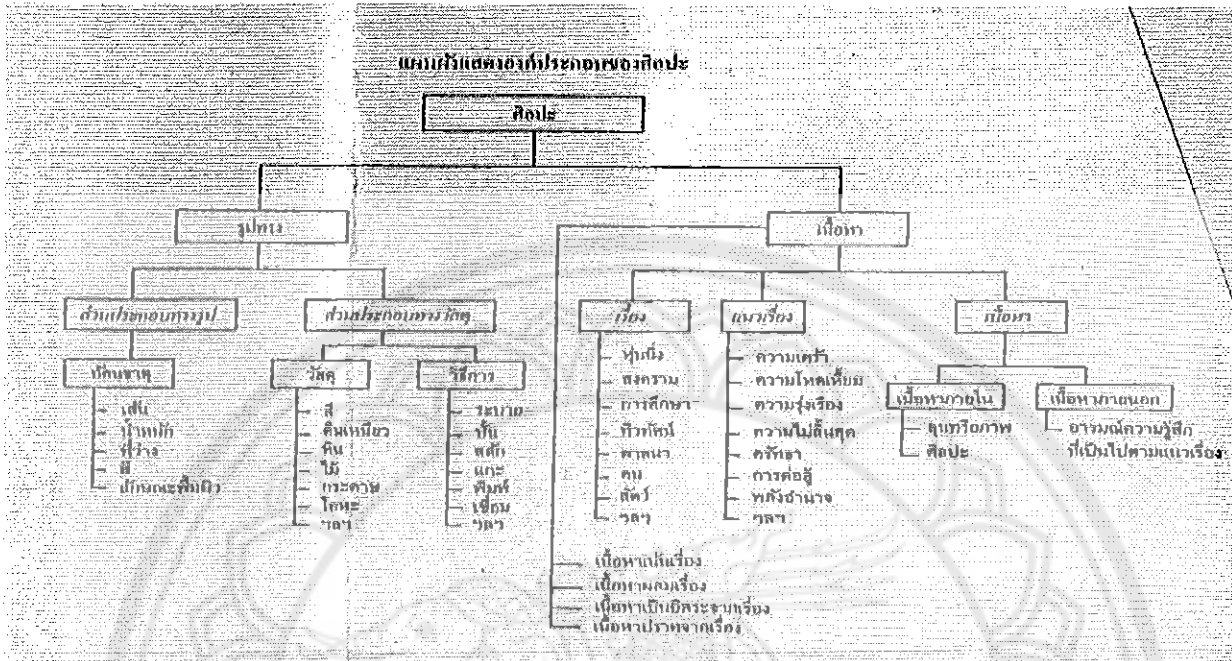 แผนผังแสดงองค์ประกอบของศิลปะ
ศิลปะ
รูปทรง
เนื้อหา
ส่วนประกอบทางรูป
ส่วนประกอบทางวัสดุ
เรื่อง
แนวเรื่อง
เนื้อหา
ทัศนธาตุ
วัสดุ
วิธีการ
เส้น
น้ำหนัก
ที่ว่าง
สี
ลักษณะพื้นผิว
สี
ดินเหนียว
หิน
ไม้
กระดาษ
โลหะ
ฯลฯ
ระบาย
ปั้น
สลัก
แกะ
พิมพ์
เชื่อม
ฯลฯ
หุ่นนิ่ง
สงคราม
การศึกษา
ทิวทัศน์
ศาสนา
คน
สัตว์
ฯลฯ
ความเศร้า
ความโหดเหี้ยม
ความรุ่งเรือง
ความไม่สิ้นสุด
ศรัทธา
การต่อสู้
พลังอำนาจ
ฯลฯ
เนื้อหาภายใน
เนื้อหาภายนอก
สุนทรียภาพ
ศิลปะ
อารมณ์ความรู้สึก
ที่เป็นไปตามแนวเรื่อง
เนื้อหาเน้นเรื่อง
เนื้อหาผสมเรื่อง
เนื้อหาเป็นอิสระจากเรื่อง
เนื้อหาปราศจากเรื่อง